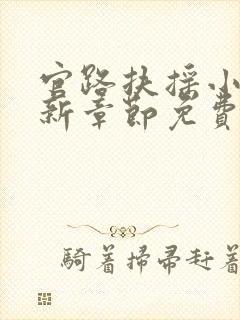 官路扶摇小
新章節免費
騎着掃帚赶着